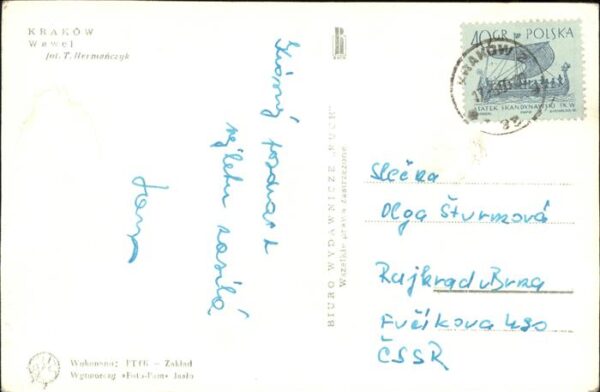 KRAKÓW
Wawel
fot. T. Hermańczyk
Krásný pozdrav z
výletu zasílá
BIURO WYDAWNICZE „RUCH”
Wszelkie prawa zastrzeżone
40GR POLSKA
KRAKÓW 2
STATEK SKANDYNAWSKI IX W.
Slečna
Olga Šturmová
Rajhrad u Brna
Fučíkova 490
ČSSR
Wykonano: PTFG - Zakład
Wytwórczy «Foto-Pam» Jasło